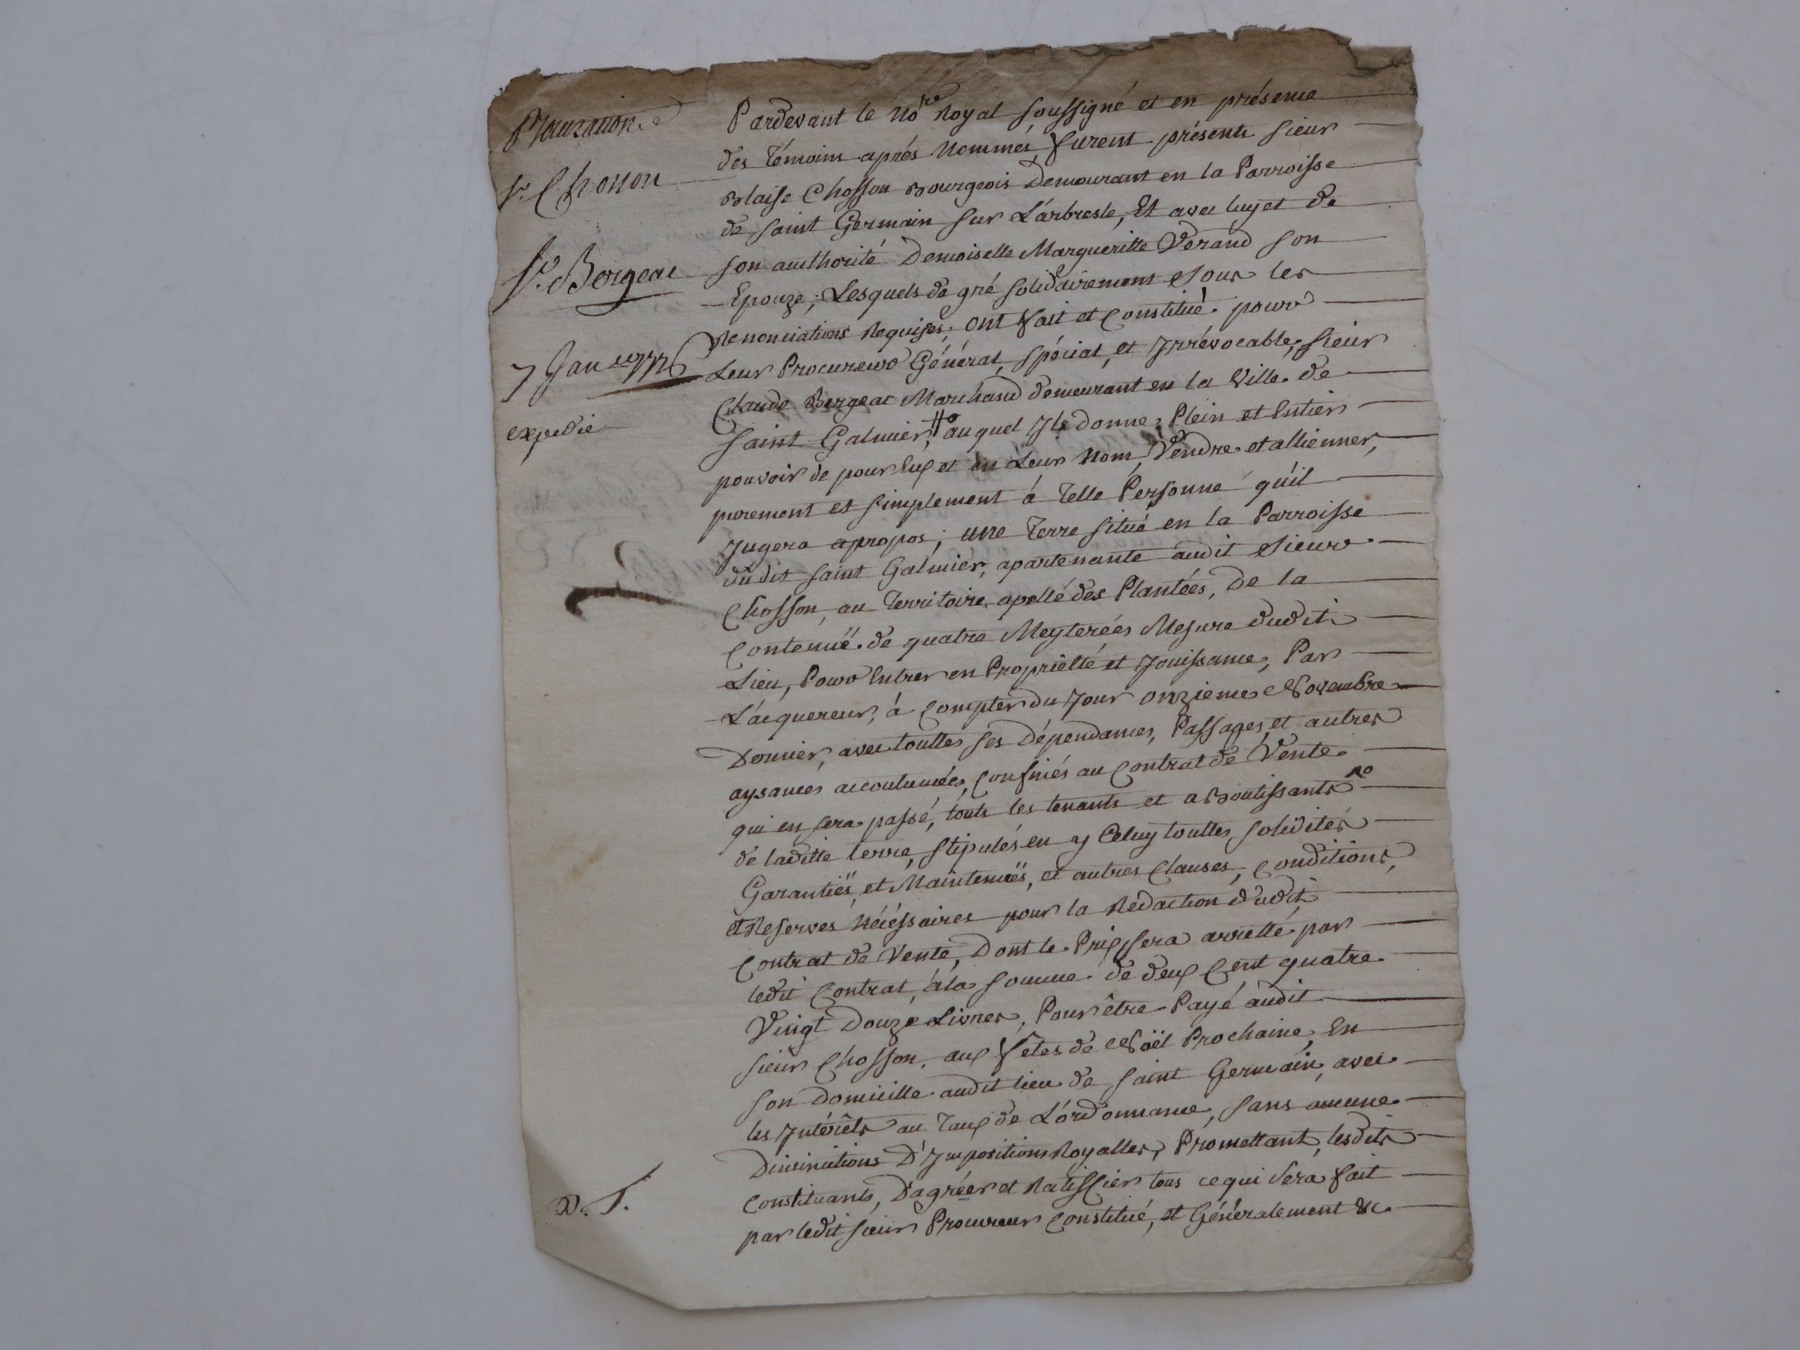 Procuration
Sr. Chosson
Sr. Bergeac
7 Janer 1776
expedié
Pardevant le Nore Royal soussigné et en présence
des Témoins aprés Nommés furent présents sieur
Blaise Chosson Bourgeois Demeurant en la Parroisse
de saint Germain sur L'arbresle, Et avec luy et de
son authorité Demoiselle Margueritte Verand son
Epouze, Lesquels de gré solidairement sous les
Renonciations Requises, ont fait et Constitué pour
Leur Procureur Général, spécial, et Jrrévocable, sieur
Claude Bergeac Marchand demeurant en la Ville de
saint Galmier, auquel Jls donne Plein et Entier
pouvoir de pour Eux et en Leur Nom, Vendre et allienner,
purement et simplement à Telle Personne qu'il
Jugera apropos, une Terre situé en la Parroisse
dudit saint Galmier, apartenante audit sieur
Chosson, au Territoire apellé des Plantées, De la
Contenuë de quatre Meyterées Mesure dudit
Lieu, Pour Entrer en Propriëlté et Jouissance, Par
L'acquereur, à Compter du Jour onzieme Novembre
Dernier, avec touttes ses Dépendances, Passages, et autres
aysances accoutumées, Confinés au Contrat de Vente
qui en sera passé, touts les tenants et aboutissants
de laditte terre, stipulés en yceluy touttes soliditës
Garantiës, et Maintenuës, et autres Clauses, Conditions,
et Reserves Nécéssaires pour la Rédaction dudit
Contrat de Vente, Dont le Prix sera arrellé par
ledit Contrat, à la somme de deux Cent quatre
Vingt Douze Livres, Pour être Payé audit
sieur Chosson, aux fêtes de Noël Prochaine, En
son Domicille audit lieu de saint Germain, avec
les Jntérêts au Taux de L'ordonnance, sans aucune
Diminutions D'Jmpositions Royalles, Promettant, lesdits
Constituants, D'agréer et Ratiffier tous ce qui sera fait
par ledit sieur Procureur Constitué, et Généralement &c.